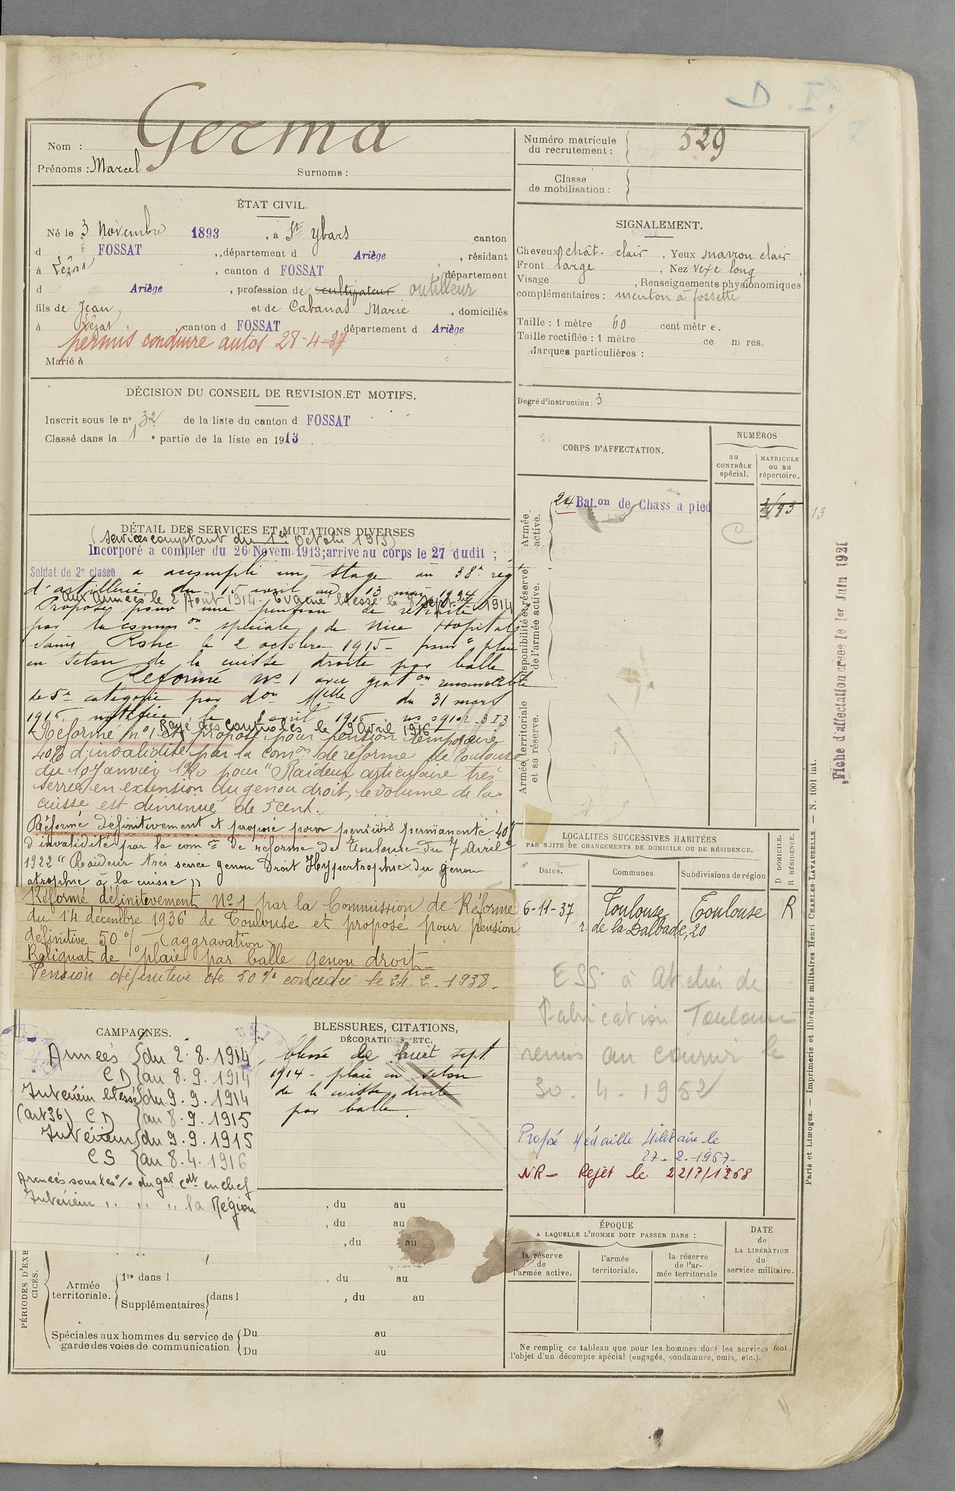 I. D
Nom : Germa
Prénoms : Marcel Surnoms :
Numéro matricule du recrutement : 529
Classe de mobilisation :
ÉTAT CIVIL.
Né le 3 Novembre 1893, à St Ybars canton
d FOSSAT, département d Ariège, résidant
à Lézat, canton d FOSSAT département
d Ariège, profession de cultivateur outilleur
fils de Jean et de Cabanas Marie, domiciliés
à Lézat, canton d FOSSAT, département d Ariège
permis conduire autos 28-4-37
Marié à
SIGNALEMENT.
Cheveux chât. clair, Yeux marron clair
Front large, Nez vexe long
Visage , Renseignements physionomiques
complémentaires : menton à fossette
Taille : 1 mètre 60 centimètre.
Taille rectifiée : 1 mètre ce m res.
Marques particulières :
Degré d'instruction : 3
DÉCISION DU CONSEIL DE REVISION ET MOTIFS.
Inscrit sous le n° 32 de la liste du canton d FOSSAT
Classé dans la 1e partie de la liste en 1913
CORPS D'AFFECTATION.
NUMÉROS
au CONTRÔLE spécial.
MATRICULE ou au répertoire.
Armée active.
24 Bat.on de Chass à pied
13
Disponibilité et réserve de l'armée active.
Armée territoriale et sa réserve.
Fiche d'affectation créée le 1er Juin 1921
DÉTAIL DES SERVICES ET MUTATIONS DIVERSES
(services comptant du 1er Octobre 1913)
Incorporé à compter du 26 Novem. 1913; arrivé au corps le 27 dudit ;
Soldat de 2e classe a accompli un stage au 38e regt
d'artillerie du 15 avril au 13 mai 1914
aux armées le 2 Août 1914 - Evacué blessé le 8 Sept. 1914
Proposé pour une pension de retraite
par la common spéciale de Nice Hopital
le 2 octobre 1915 - pour plaie
en seton de la cuisse droite par balle
Réformé n° 1 avec graton renouvelable
de 5e catégorie par don Mlle du 31 mars
1916 notifiée le
Rayé des controles le 9 Avril 1916
Réformé n° 1 et proposé pour pension temporaire
40% d'invalidité par la comon de réforme de Toulouse
du 10 Janvier 1920 pour "Raideur articulaire très
serrée en extension du genou droit, le volume de la
cuisse est diminué de 5 cent.
Réformé définitivement et proposé pour pension permanente 40%
d'invalidité par la comon de réforme de Toulouse du 7 Avril
1922 "Raideur très serrée genou Droit Hypertrophie du genou
atrophie à la cuisse"
Réformé définitivement N° 1 par la Commission de Réforme
du 14 décembre 1936 de Toulouse et proposé pour pension
définitive 50 % (aggravation)
Reliquat de plaie par balle genou droit
Pension définitive de 50% concédée le 24. 2. 1938.
LOCALITÉS SUCCESSIVES HABITÉES
PAR SUITE DE CHANGEMENTS DE DOMICILE OU DE RÉSIDENCE.
Dates. Communes. Subdivisions de région D DOMICILE. R RÉSIDENCE.
6-11-37 Toulouse Toulouse R
r. de la Dalbade, 20
ESS à Atelier de
Fabrication Toulouse
remis au courrir le
30. 4. 1952
Proposé Médaille Militaire le
27-2-1967-
NR - Rejet le 22/7/1968
CAMPAGNES.
Armées du 2.8.1914
C D au 8.9.1914
Intérieur blessé du 9.9.1914
(art 36) C D au 8.9.1915
Intérieur du 9.9.1915
C S au 8.4.1916
Armées sous les % du gal Cdt en chef
Intérieur " " " la Région
BLESSURES, CITATIONS,
DÉCORATIONS, ETC.
blessé le huit sept
1914 - plaie en seton
de la cuisse droite
par balle.
, du au
, du au
, du au
PÉRIODES D'EXERCICES.
Armée territoriale.
1re dans l , du au
Supplémentaires dans l , du au
Spéciales aux hommes du service de garde des voies de communication
Du au
Du au
ÉPOQUE
A LAQUELLE L'HOMME DOIT PASSER DANS :
la réserve de l'armée active.
l'armée territoriale.
la réserve de l'armée territoriale
DATE de LA LIBÉRATION du service militaire.
Ne remplir ce tableau que pour les hommes dont les services font
l'objet d'un décompte spécial (engagés, condamnés, omis, etc.).
Paris et Limoges. — Imprimerie et librairie militaires Henri CHARLES-LAVAUZELLE. — N. 1001 int.